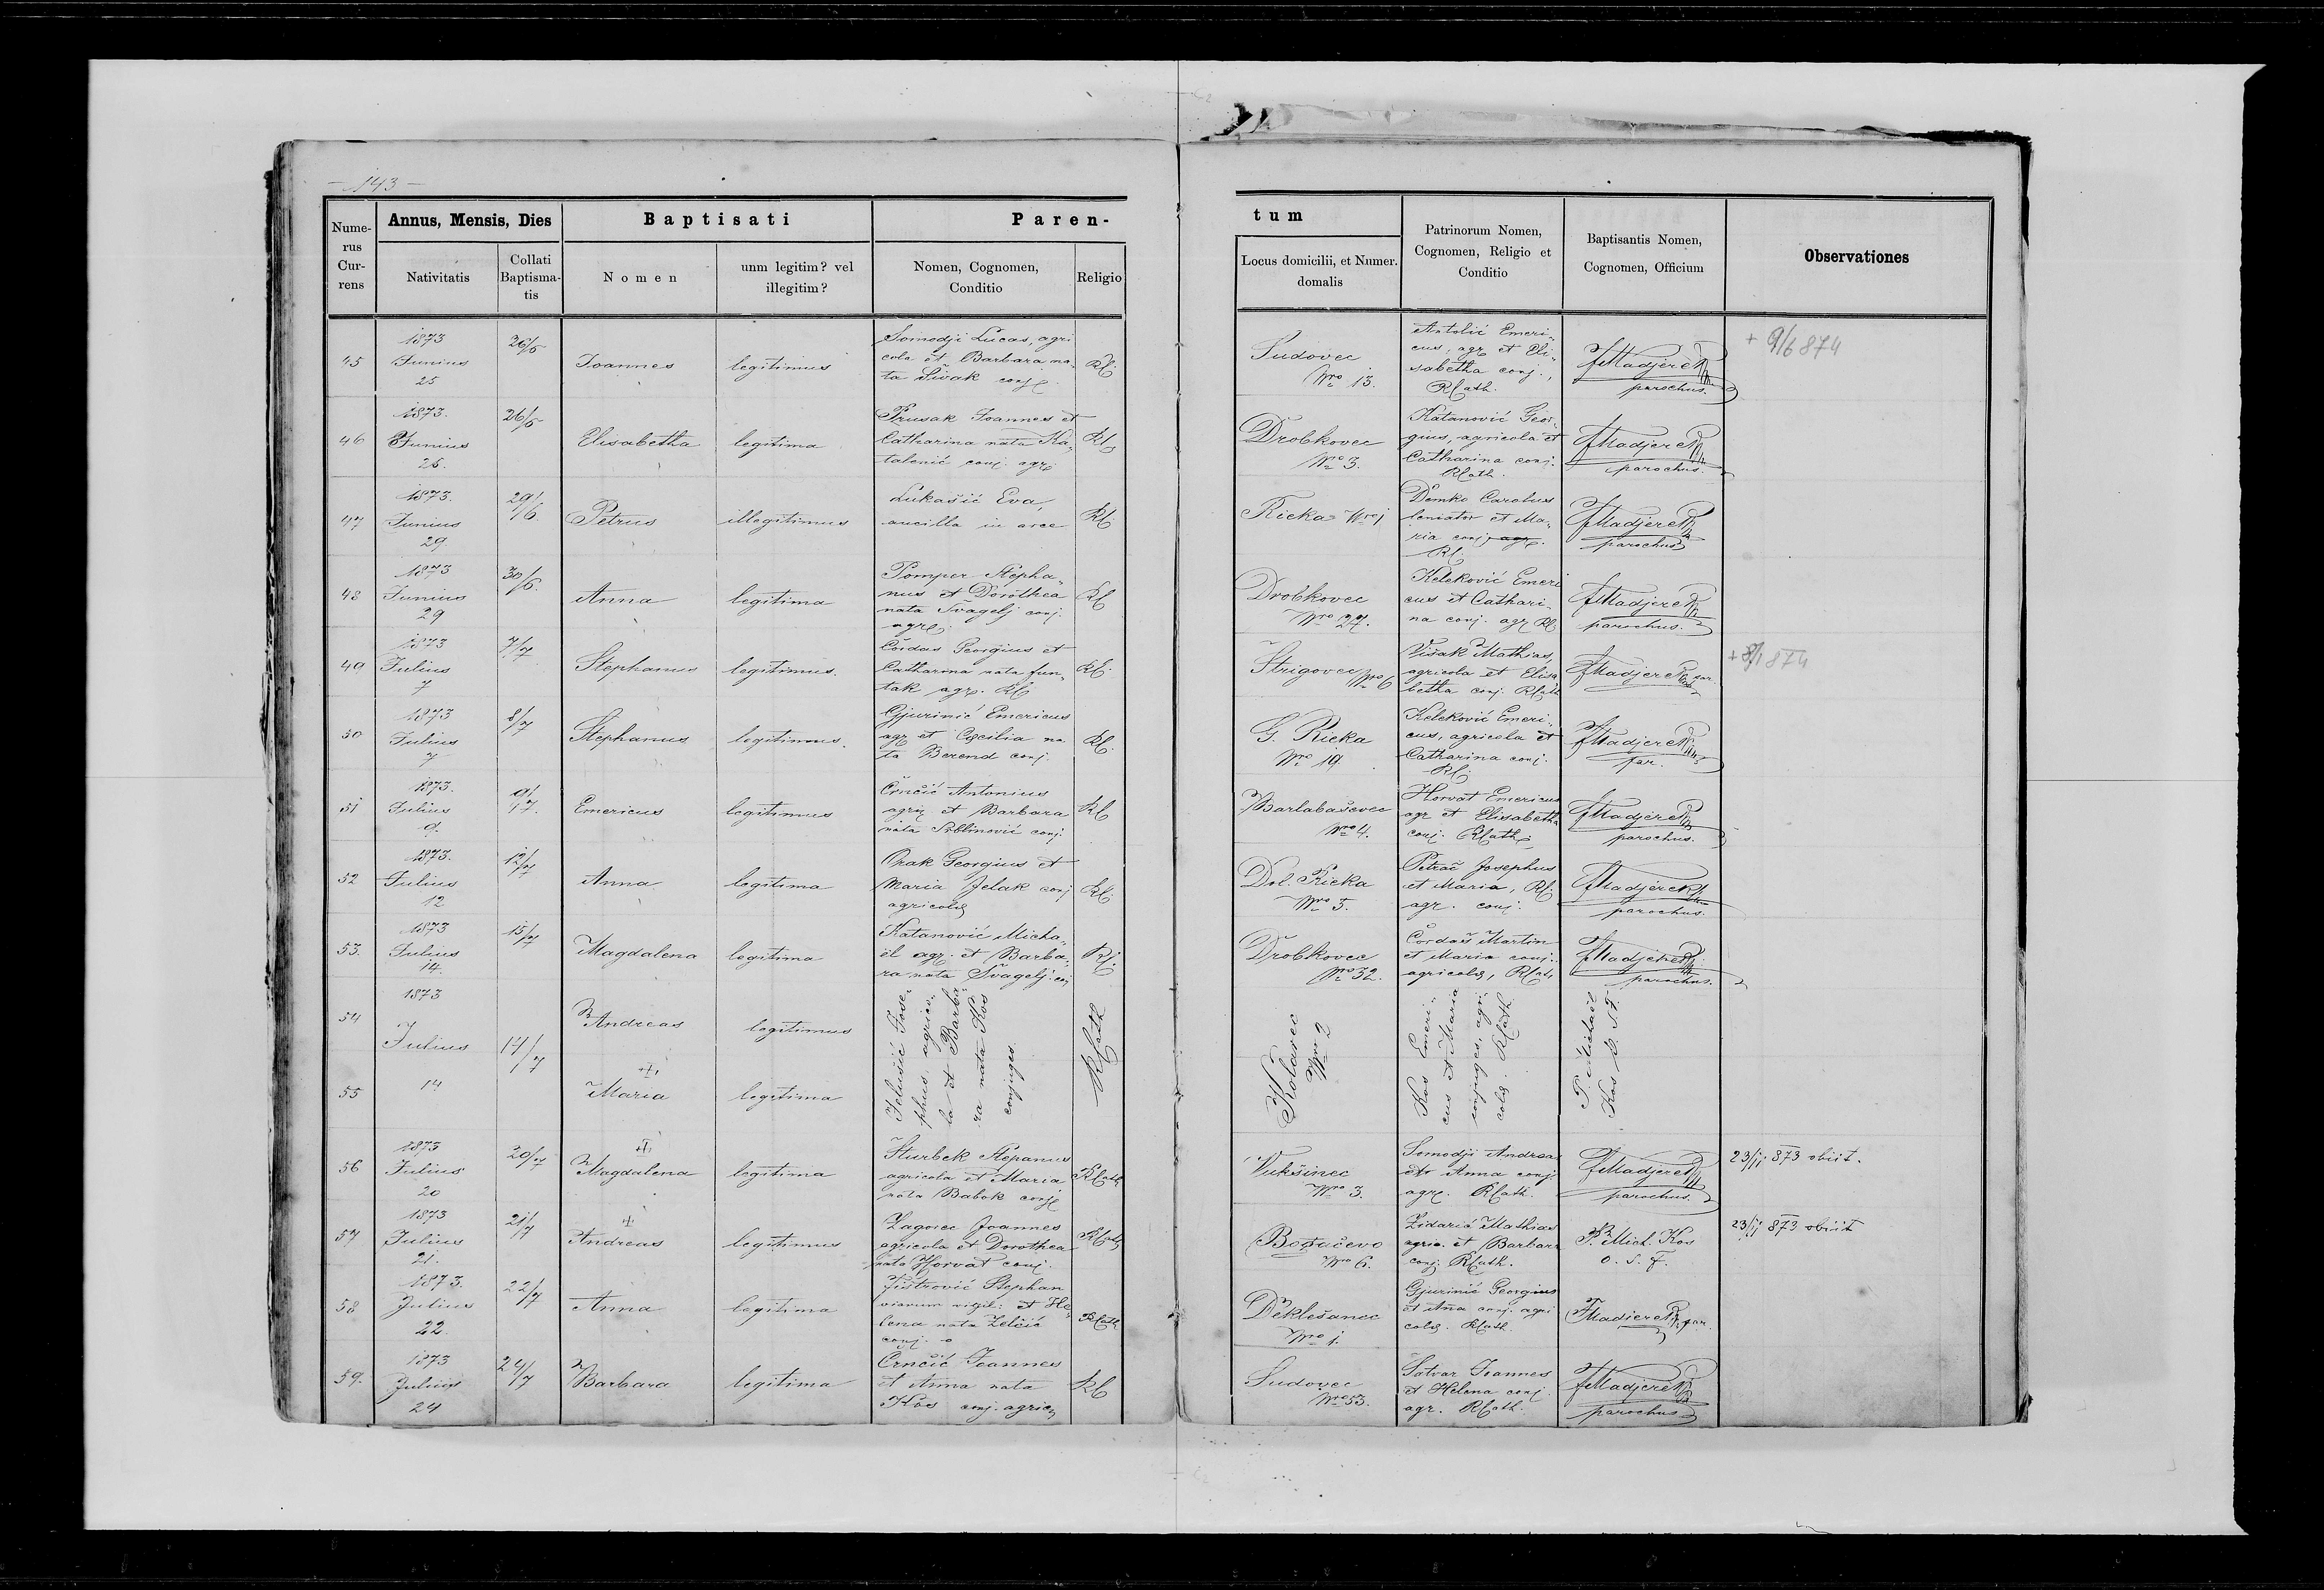 - 143 -
Nume-
rus
Cur-
rens
Annus, Mensis, Dies
Nativitatis
Collati
Baptisma-
tis
Baptisati
Nomen
unm legitim? vel
illegitim?
Paren-
Nomen, Cognomen,
Conditio
Religio
tum
Locus domicilii, et Numer.
domalis
Patrinorum Nomen,
Cognomen, Religio et
Conditio
Baptisantis Nomen,
Cognomen, Officium
Observationes
45
1873
Junius
25
26/6
Joannes
legitimus
Somodji Lucas, agri
cola et Barbara na
ta Šivak conj.
RC.
Sudovec
Nro 13.
Antolić Emeri
cus, agr. et Eli
sabetha conj.,
RCath.
parochus.
+ 9/6 874
46
1873.
Junius
25.
26/6
Elisabetha
legitima
Prusak Joannes et
Catharina nata Ka-
talenić conj. agr.
RC
Drobkovec
Nro 3.
Katanović Geor-
gius, agricola et
Catharina conj.
RCath.
parochus.
47
1873.
Junius
29
29/6
Petrus
illegitimus
Lukašić Eva,
ancilla in arce
RC.
Rieka Nro 1
Demko Carolus
et Ma-
ria conj. agr.
RC.
parochus
48
1873
Junius
29
30/6.
Anna
legitima
Pomper Stepha-
nus et Dorothea
nata Švagelj conj.
agr.
RC
Drobkovec
Nro 27.
Keleković Emeri
cus et Cathari-
na conj. agr RC
parochus.
49
1873
Julius
7
7/7
Stephanus
legitimus.
Čordaš Georgius et
Catharina nata Jun-
tak agr. RC
RC.
Štrigovec Nro 6
Višak Mathias,
agricola et Elisa
betha conj. RCath
par.
+ 8/1 874
50
1873
Julius
7
8/7
Stephanus
legitimus.
Gjurinić Emericus
agr et Cæcilia na
ta Berend conj.
RC.
G. Rieka
Nro 19.
Keleković Emeri-
cus, agricola et
Catharina conj.
RC.
par.
51
1873.
Julius
9.
9/7.
Emericus
legitimus
Črnčić Antonius
agric et Barbara
nata conj.
RC
Barlabaševec
Nro 4.
Horvat Emericus
agr et Elisabetha
conj. RCath.
parochus.
52
1873.
Julius
12
12/7
Anna
legitima
Orak Georgius et
Maria Jelak conj
agricolæ
RC.
Dol. Rieka
Nro 5.
Petrač Josephus
et Maria, RC.
agr. conj.
parochus.
53.
1873
Julius
14.
15/7
Magdalena
legitima
Katanović Micha-
el agr. et Barba-
ra nata Švagelj conj
RC.
Drobkovec
Nro 32.
Čordaš Martin
et Maria conj.
agricolæ, RCat.
parochus.
54
55
1873
Julius
14
14/7
Andreas
legitimus
Maria
legitima
Jelušić Jose-
phus, agrico-
la et Barba-
ra nata Kos
conjuges.
RCath
Kolarec
Nro 2
Kos Emeri-
cus et Maria
conjuges, agri
colæ. RCath.
P. Michaël
Kos O. S. F.
56
1873
Julius
20
20/7
Magdalena
legitima
Sturbek Stepanus
agricola et Maria
nata Babok conj.
RCath
Vukšinec
Nro 3.
Somodji Andreas
et Anna conj.
agr. RCath.
parochus.
23/11 873 obiit.
57
1873
Julius
21.
21/7
Andreas
legitimus
Zagorec Joannes
agricola et Dorothea
nata Horvat conj.
RCath
Botučevo
Nro 6.
Zidarić Mathias
agric. et Barbara
conj. RCath.
P. Mich. Kos
O. S. F.
23/11 873 obiit
58
1873.
Julius
22
22/7
Anna
legitima
Stephan
viarum vigil: et He-
lena nata Zelčić
conj.
RCath
Deklešanec
Nro 1.
Gjurinić Georgius
et Anna conj. agri
colæ. RCath.
par.
59.
1873
Julius
24
24/7
Barbara
legitima
Črnčić Joannes
et Anna nata
Kos conj. agric
RC
Sudovec
Nro 53.
Sotvar Joannes
et Helena conj.
agr. RCath.
parochus